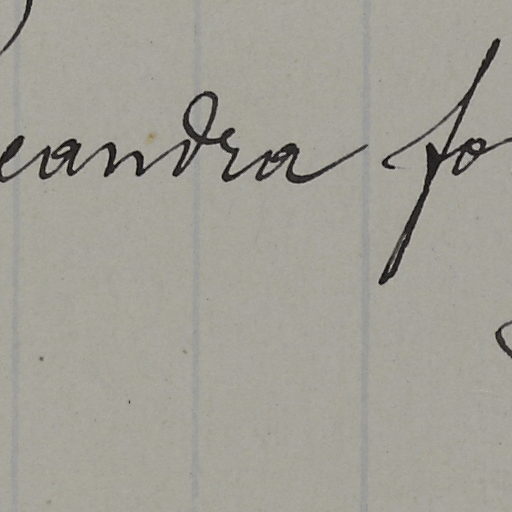 eandra fo